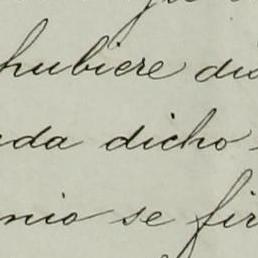 hubiere dic
da dicho
nio se fir